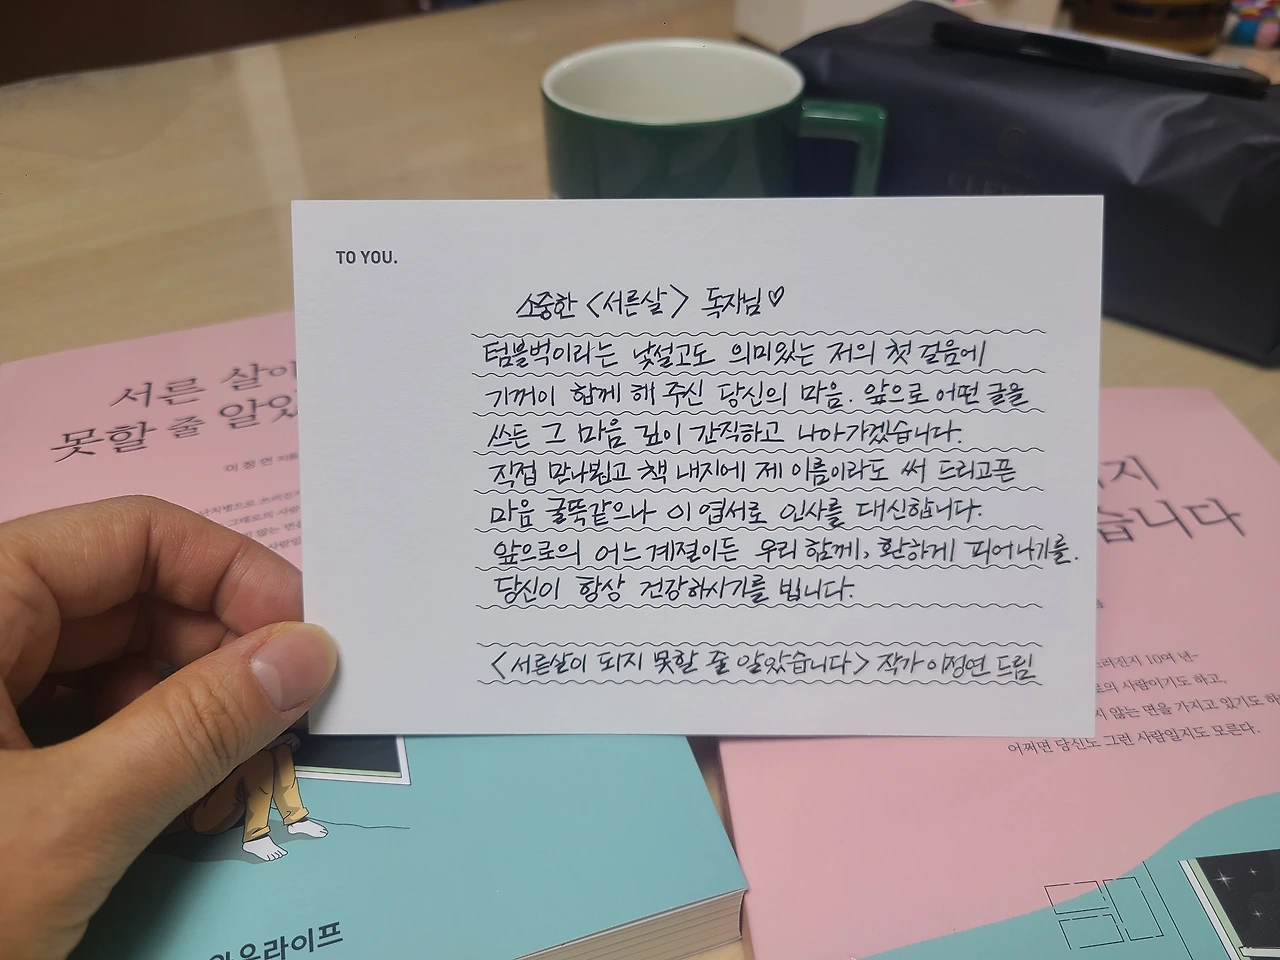 TO YOU.
소중한 <서른살> 독자님♡
텀블벅이라는 낯설고도 의미있는 저의 첫 걸음에
기꺼이 함께 해 주신 당신의 마음. 앞으로 어떤 글을
쓰든 그 마음 깊이 간직하고 나아가겠습니다.
직접 만나뵙고 책 내지에 제 이름이라도 써 드리고픈
마음 굴뚝같으나 이 엽서로 인사를 대신합니다.
앞으로의 어느 계절이든 우리 함께, 환하게 피어나기를.
당신이 항상 건강하시기를 빕니다.
<서른살이 되지 못할 줄 알았습니다> 작가 이정연 드림
서른 살이
못할 줄 알았
이정연
지
습니다
쓰러진지 10여 년-
로의 사람이기도 하고,
지 않는 면을 가지고 있기도 하
어쩌면 당신도 그런 사람일지도 모른다.
라이프